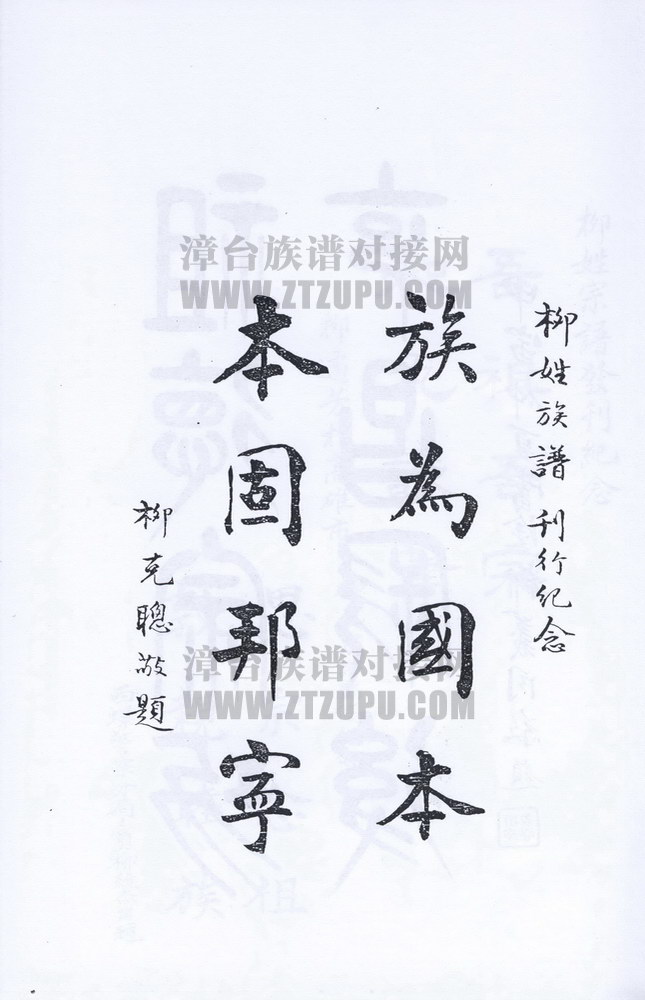 柳姓族譜刊行紀念
族為國本
本固邦寧
柳克聰敬題
漳台族谱对接网
WWW.ZTZUPU.COM
漳台族谱对接网
WWW.ZTZUPU.COM